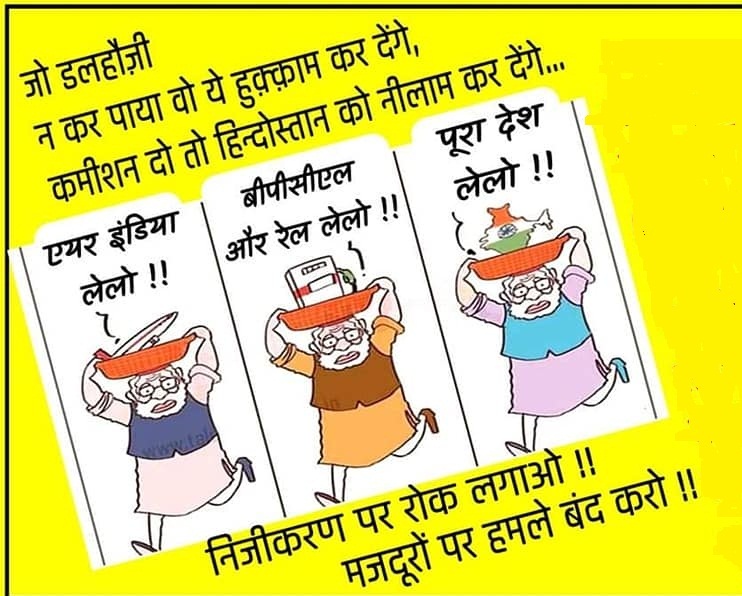 जो डलहौज़ी
न कर पाया वो ये हुक़्क़ाम कर देंगे,
कमीशन दो तो हिन्दोस्तान को नीलाम कर देंगे...
एयर इंडिया
लेलो !!
बीपीसीएल
और रेल लेलो !!
पूरा देश
लेलो !!
निजीकरण पर रोक लगाओ !!
मजदूरों पर हमले बंद करो !!